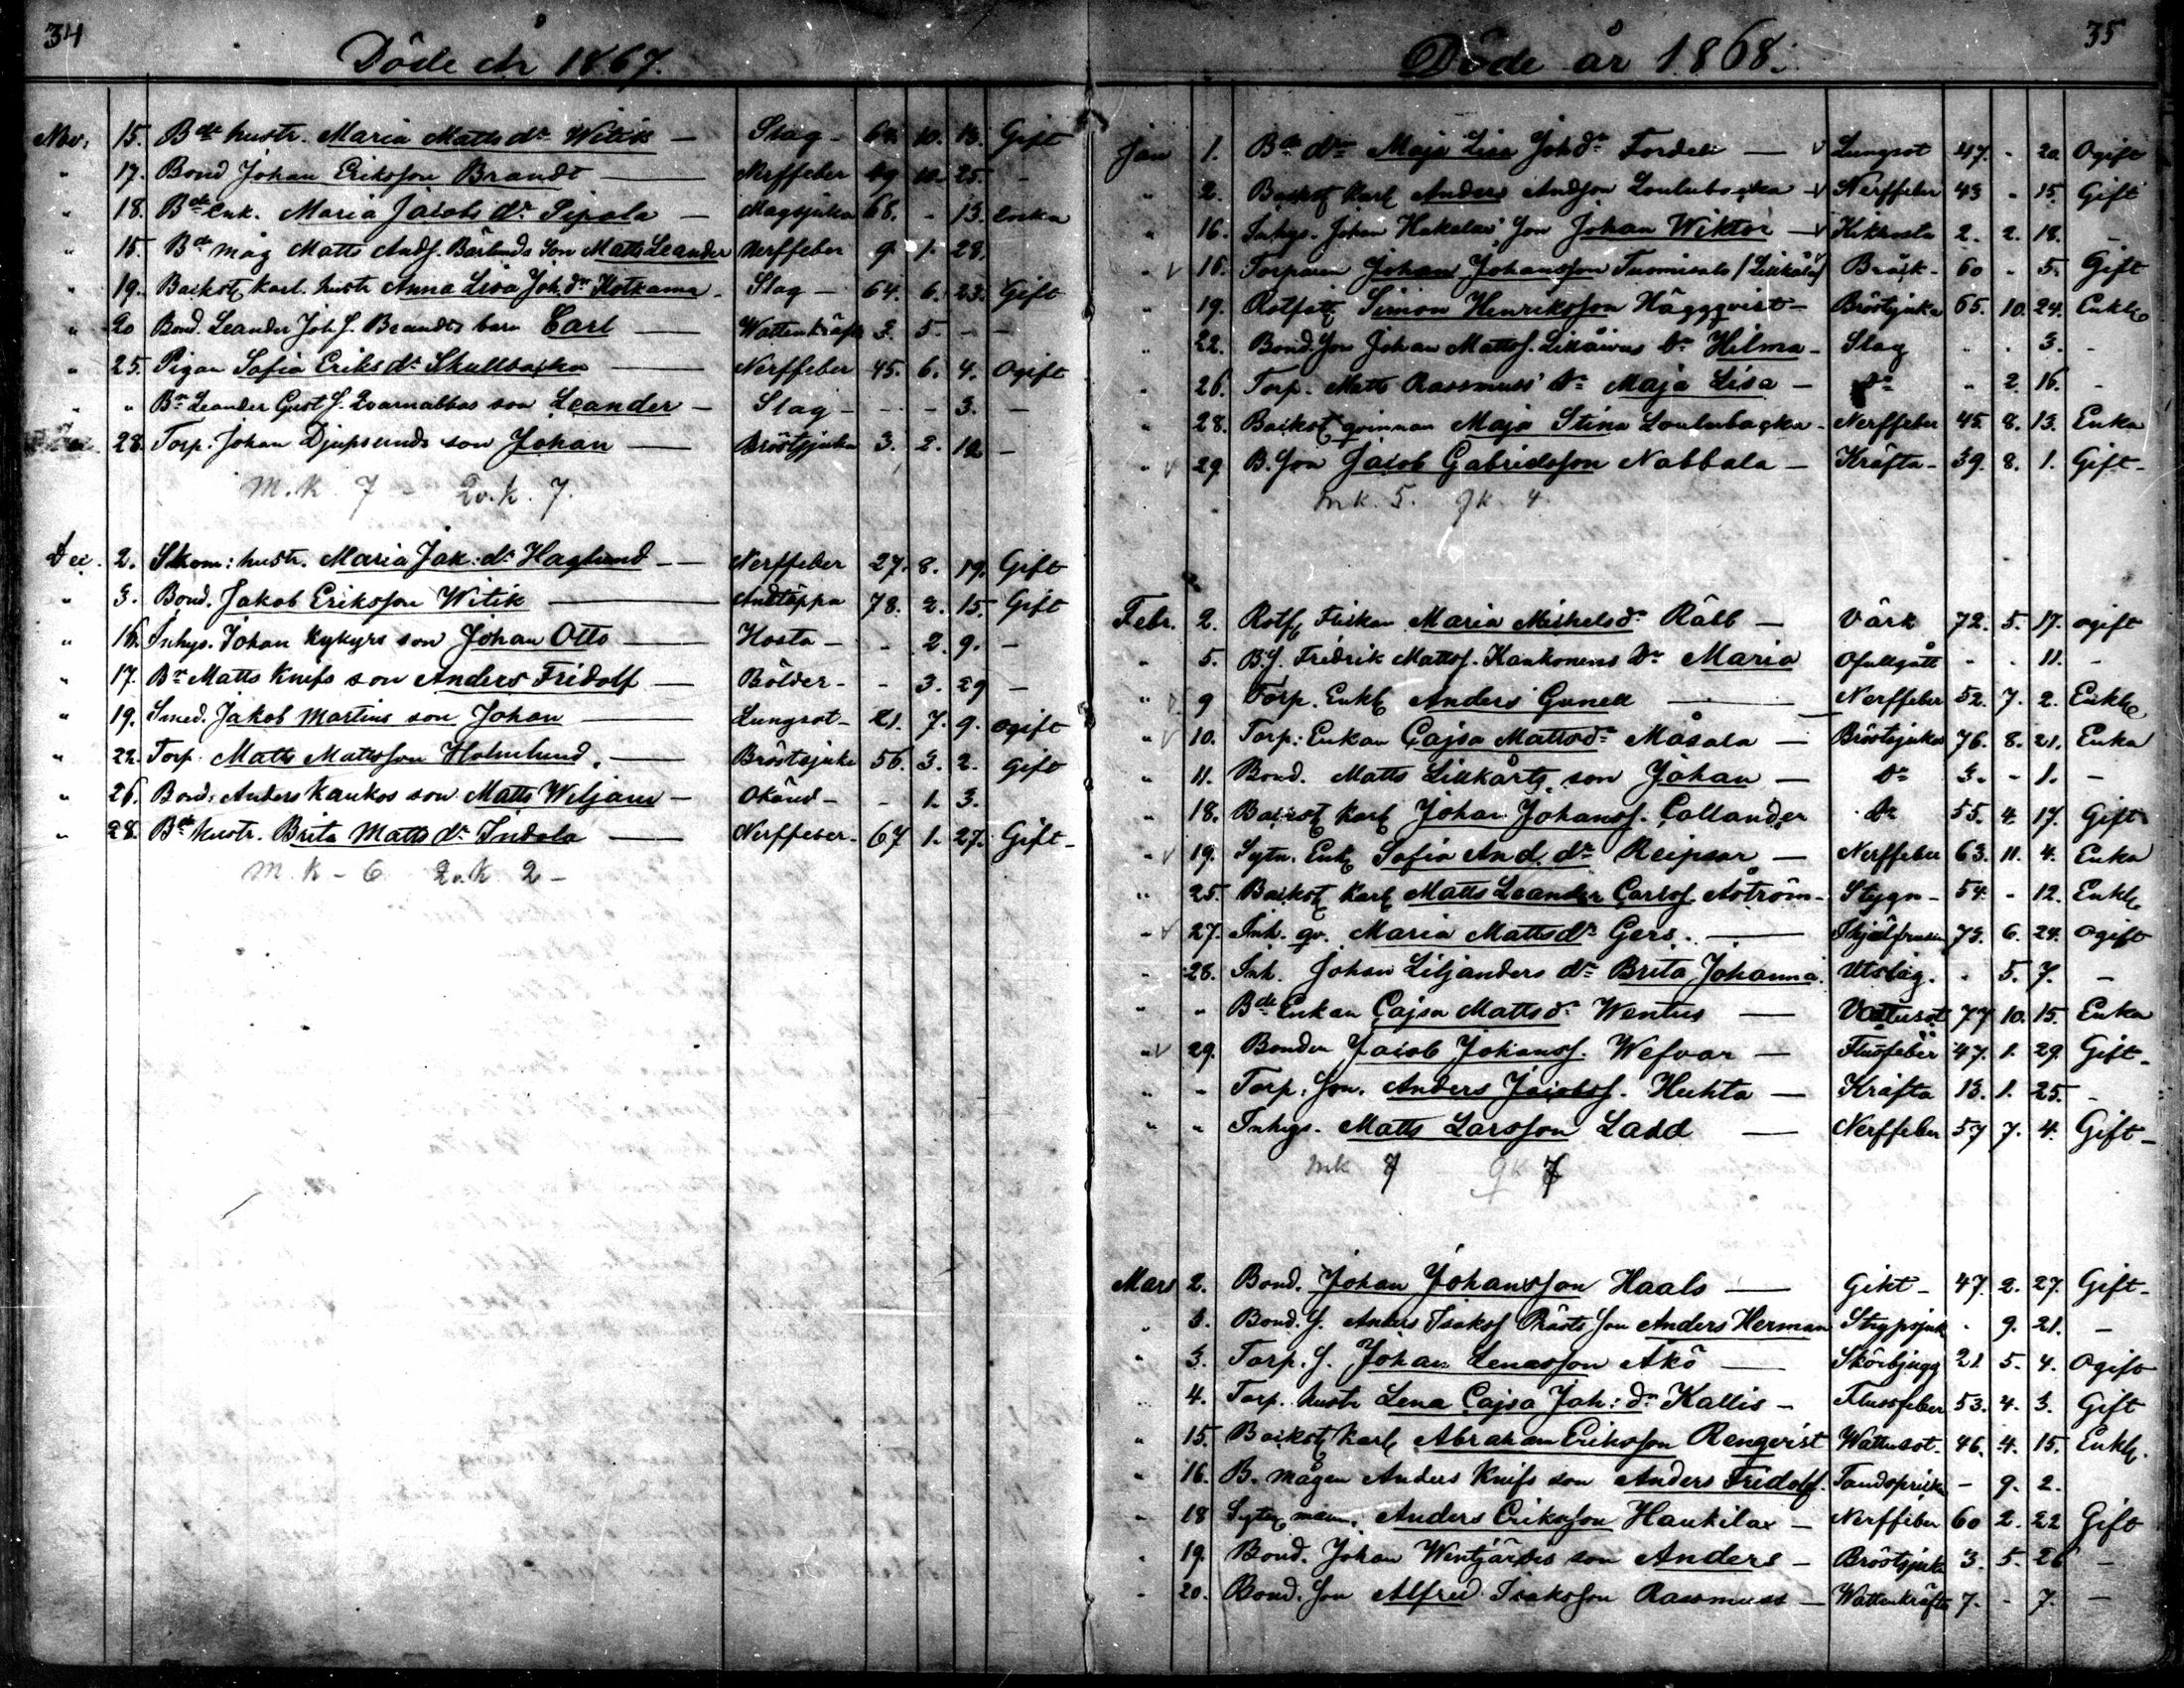 34
Döde år 1867.
Nov. 15. Bde hustr. Maria Matts dr Witik — Slag - 64. 10. 13. Gift
" 17. Bond Johan Eriksson Brandt — Nerffeber 49 10. 25. -
" 18. Bde enk. Maria Jacobs dr Sipola — Magsjuka 68. - 13. Enka
" 15. Bde måg Matts Ands. Bärlunds son Matts Leander Nerffeber 9. 1. 28.
" 19. Backst karl. hustr Anna Lisa Joh. dr Kotkama - Slag - 64. 6. 23. Gift
" 20 Bond. Leander Joh S. Brandts barn Carl — Wattenkräfta 3. 5. - -
" 25. Pigan Sofia Eriks dr Skullbacka — Nerffeber 45. 6. 4. Ogift
" " Bn Leander Gust S. Qvarnabbas son Leander — Slag - - - 3. -
28. Torp. Johan Djupsunds son Johan — Bröstsjuka 3. 2. 12 -
M.K. 7 - Qv.k. 7.
Dec. 2. Skom: hustr. Maria Jak: dr Haglund — Nerffeber 27. 8. 19. Gift
" 3. Bond. Jakob Eriksson Witik — Andtäppa 78. 2. 15. Gift
" 16. Inhys. Johan Kykyrs son Johan Otto — Hosta - - 2. 9. -
" 17. Bn Matts Knifs son Anders Fridolf — Bölder - - 3. 29 -
" 19. Smed. Jakob Martins son Johan — Lungsot - 21. 7. 9. ogift
" 22. Torp. Matts Mattsson Holmlund. — Bröstsjuka 56. 3. 2. gift
" 26. Bond. Anders Kaukos son Matts Wiljam — Okänd - - 1. 3.
" 28. Bde hustr. Brita Matts dr Indola — Nerffeber - 67 1. 27. Gift -
M.K - 6 Qv.k. 2 -
35
Döde år 1868.
Jan 1. Bde dr Maja Lisa Joh dr Fordell — Lungsot 47. - 20. Ogift
" 2. Backst karl Anders Andsson Loulubacka - Nerffeber 43 - 15. Gift
" 16. Inhys. Johan Hakalas son Johan Wiktor — Kikhosta 2. 2. 18. -
" 16. Torparen Johan Johansson Tuomisalo / Bråck - 60 - 5. Gift
" 19. Rotfatt Simon Henriksson Häggqvist - Bröstsjuka 65. 10. 24. Enkl
" 22. Bond. Son Johan Mattss. dr Hilma - Slag - - 3. -
" 26. Torp. Matts Rassmuss dr Maja Lisa - dr " 2. 16. -
" 28. Backst qvinnan Maja Stina Loulubacka - Nerffeber 45 8. 13. Enka
" 29. B. Son Jacob Gabrielsson Nabbala - Kräfta - 39. 8. 1. Gift -
mk. 5. qk. 4.
Febr. 2. Rotf flickan Maria Michelsdr Räbb — Värk 72. 5. 17. ogift
" 5. B.S. Fredrik Mattss. Kankonens dr Maria Ofullgått - - 11. -
" 9 Torp. Enkl Anders Gunell — Nerffeber 52. 7. 2. Enkl
" 10. Torp: Enkan Cajsa Mattsdr Måsala — Bröstsjuka 76. 8. 21. Enka
" 11. Bond. Matts Lillkårts son Johan — dr 3. - 1. -
" 18. Backst karl Johan Johanss. Callander dr 55. 4. 17. Gift
" 19. Sytn. Enk Sofia And. dr Reipsar — Nerffeber 63. 11. 4. Enka
" 25. Backst karl Matts Leander Carlss. Åström - Stygn - 54. - 12. Enkl
" 27. Inh. qv. Maria Mattsdr Gers. — 73. 6. 24. Ogift
" 28. Inh. Johan Liljanders dr Brita Johanna. Utslag. - 5. 7. -
" " Bde Enkan Cajsa Mattsdr Wentus — Vattusot 77 10. 15. Enka
" 29. Bonden Jacob Johanss. Wefvar — Flussfeber 47. 1. 29. Gift -
" - Torp. Son. Anders Jacobss. Huhta — Kräfta 13. 1. 25. -
" " Inhys. Matts Larsson Ladd — Nerffeber 57 7. 4. Gift -
mk 7 qk 7
Mars 2. Bond. Johan Johansson Haals — Gikt - 47. 2. 27. Gift -
" 3. Bond. S. Anders Isakss Prästs son Anders Herman Strypsjuk - 9. 21. -
" 3. Torp. S. Johan Lenasson Akö — Skörbjugg 21. 5. 4. Ogift
" 4. Torp. hustr Lena Cajsa Joh: dr Kallis - Flussfeber 53. 4. 3. Gift
" 15. Backst karl Abraham Eriksson Renqvist Wattusot. 46. 4. 15. Enkl.
" 16. B. mågen Anders Knifs son Anders Fridolf. Tandsprickn - 9. 2.
" 18 Sytn. man. Anders Eriksson Haukilax - Nerffeber 60 2. 22 Gift
" 19. Bond. Johan Wentjärvis son Anders - Bröstsjuk 3. 5. 26 -
" 20. Bond. Son Alfred Isaksson Rassmuss - Wattenkräfta 7. - 7. -